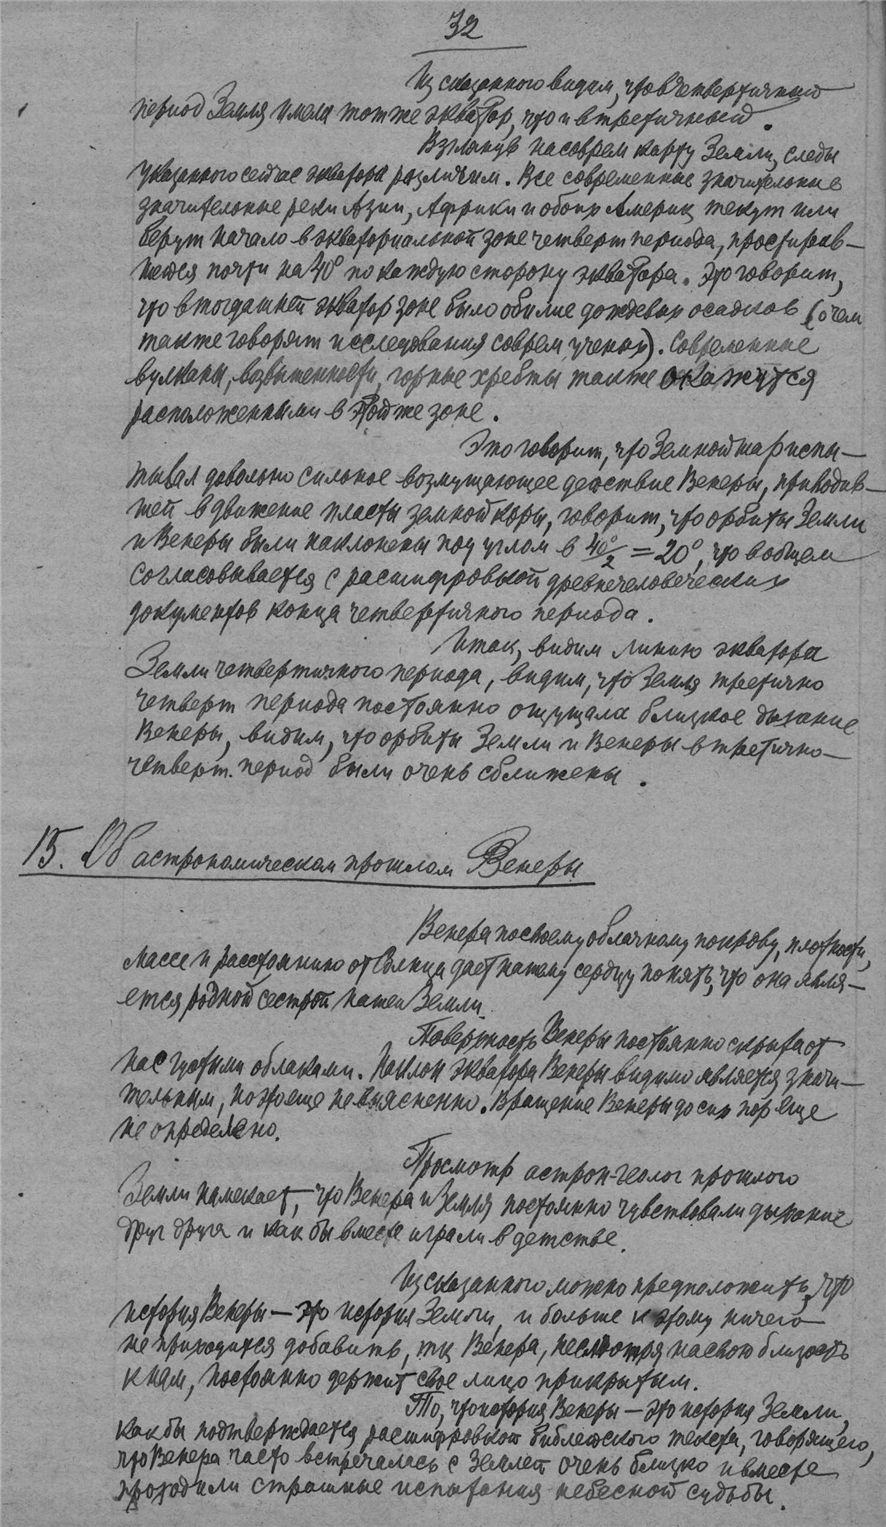 32
Из сказанного видим, что в четвертичный
период Земля имела тот же экватор, что и в третичный.
Взглянув на соврем карту Земли, следы
указанного сейчас экватора различим. Все современные значительные
значительные реки Азии, Африки и обоих Америк текут или
берут начало в экваториальной зоне четверт периода, простирав-
шейся почти на 40° по каждую сторону экватора. Это говорит,
что в тогдашней экватор зоне было обилие дождевых осадков (о чем
также говорят исследования соврем ученых). Современные
вулканы, возвышенности, горные хребты также окажутся
расположенными в той же зоне.
Это говорит, что Земной шар испы-
тывал довольно сильное возмущающее действие Венеры, приводив-
шей в движение пласты земной коры, говорит, что орбиты Земли
и Венеры были наклонены под углом в 40°/2 = 20°, что в общем
согласовывается с расшифровкой древнечеловеческих
документов конца четвертичного периода.
Итак, видим линию экватора
Земли четвертичного периода, видим, что Земля третично
четверт периода постоянно ощущала близкое дыхание
Венеры, видим, что орбиты Земли и Венеры в третично-
четверт. период были очень сближены.
15. Об астрономическом прошлом Венеры
Венера по своему облачному покрову, плотности,
массе и расстоянию от Солнца дает нашему сердцу понять, что она явля-
ется родной сестрой нашей Земли.
Поверхность Венеры постоянно скрыта от
нас густыми облаками. Наклон экватора Венеры видимо является значи-
тельным, но это еще не выясненно. Вращение Венеры до сих пор еще
не определено.
Просмотр астрон-геолог прошлого
Земли намекает, что Венера и Земля постоянно чувствовали дыхание
друг друга и как бы вместе играли в детстве.
Из сказанного можно предположить, что
история Венеры — это история Земли, и больше к этому ничего
не приходится добавить, тк Венера, несмотря на свою близость
к нам, постоянно держит свое лицо прикрытым.
То, что история Венеры — это история Земли,
как бы подтверждается расшифровкой библейского текста, говорящего,
что Венера часто встречалась с Землей очень близко и вместе
проходили страшные испытания небесной судьбы.